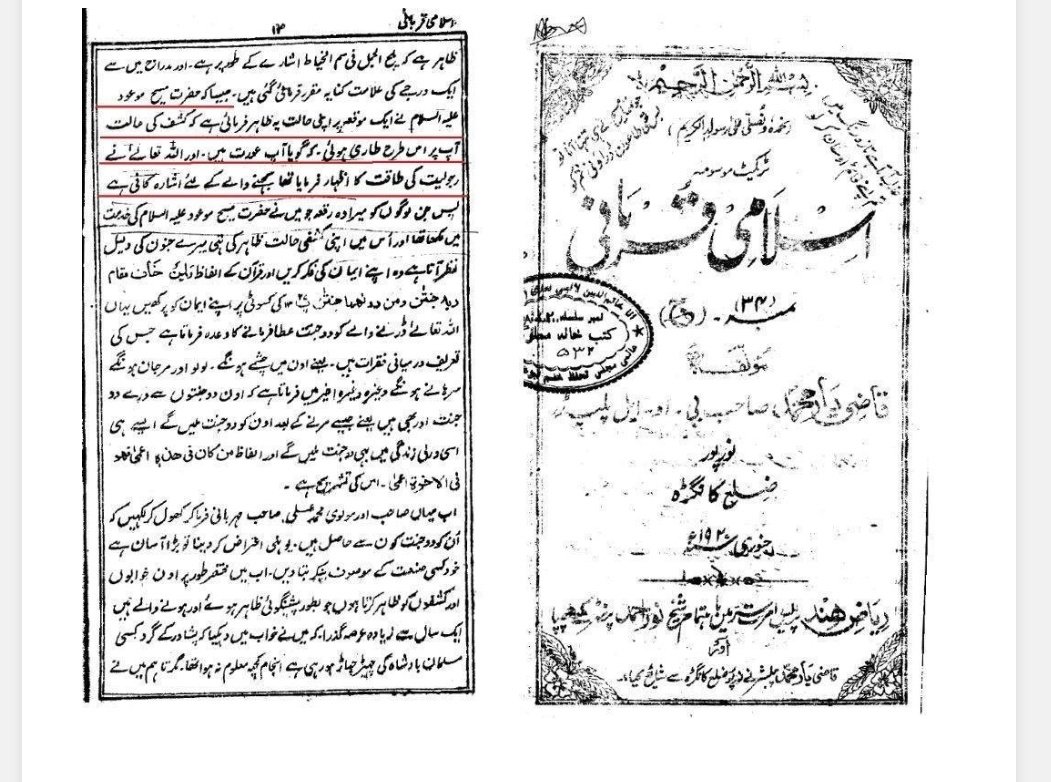 اسلامی قربانی
۱۲
ظاہر ہے کہ یلج الجمل فی سم الخیاط اشارے کے طور پر ہے۔ اور مدارج میں سے
ایک درجے کی علامت کنایہ مقرر فرمائی گئی ہیں۔ جیسا کہ حضرت مسیح موعود
علیہ السلام نے ایک موقعہ پر اپنی حالت یہ ظاہر فرمائی ہے کہ کشف کی حالت
آپ پر اس طرح طاری ہوئی۔ کہ گویا آپ عورت ہیں۔ اور اللہ تعالیٰ نے
رجولیت کی طاقت کا اظہار فرمایا تھا سمجھنے والے کے لئے اشارہ کافی ہے
پس جن لوگوں کو میرا وہ رقعہ جو میں نے حضرت مسیح موعود علیہ السلام کی خدمت
میں لکھا تھا اور اُس میں اپنی کشفی حالت ظاہر کی تھی میرے جنون کی دلیل
نظر آتا ہے وہ اپنے ایمان کی فکر کریں اور قرآن کے الفاظ ولمن خاف مقام
ربہ جنتٰن ومن دونھما جنتٰن کی کسوٹی پر اپنے ایمان کو پرکھیں یہاں
اللہ تعالےٰ ڈرنے والے کو دو جنت عطا فرمانے کا وعدہ فرماتا ہے جس کی
تعریف درمیانی فقرات ہیں۔ یعنے اون میں چشمے ہونگے۔ لولو اور مرجان ہونگے
سرہانے ہونگے وغیرہ وغیرہ اخیر میں فرماتا ہے کہ اون دو جنتوں سے ورے دو
جنت اور بھی ہیں یعنے جیسے مرنے کے بعد اون کو دو جنت ملیں گے ایسے ہی
اسی دنیوی زندگی میں بھی دو جنت ملیں گے اور الفاظ من کان فی ھذہ اعمیٰ فھو
فی الاخرۃ اعمیٰ۔ اس کی تشریح ہے۔
اب میاں صاحب اور مولوی محمد علی صاحب مہربانی فرما کر کھول کر لکھیں کہ
اُن کو دو جنت کون سے حاصل ہیں۔ یونہی اعتراض کر دینا تو بڑا آسان ہے
خود کسی صنعت کے موصوف بنکر بتا دیں۔ اب میں مختصر طور پر اون خوابوں
اور کشفوں کو ظاہر کرتا ہوں جو بطور پیشگوئی ظاہر ہوئے اور ہونے والے ہیں
ایک سال سے زیادہ عرصہ گذرا۔ کہ میں نے خواب میں دیکھا کہ پشاور کے گرد کسی
مسلمان بادشاہ کی چھیڑ چھاڑ ہو رہی ہے انجام کچھ معلوم نہ ہوا تھا۔ مگر تاہم میں نے
بسم اللہ الرحمٰن الرحیم
(نحمدہ ونصلی علیٰ رسولہ الکریم)
ٹریکٹ موسومہ
اسلامی قربانی
نمبر (۳۴)
مؤلفہ
قاضی یار محمد صاحب بی۔ او۔ ایل پلیڈر
نورپور
ضلع کانگڑہ
جنوری ۱۹۲۰ء
ریاض ہند پریس امرتسر میں باہتمام شیخ نور احمد پرنٹر چھپا
اور
قاضی یار محمد پبلشر نے نورپور ضلع کانگڑہ سے شائع کیا۔
کتب خانہ
۵۳۲
عالمی مجلس تحفظ ختم نبوت